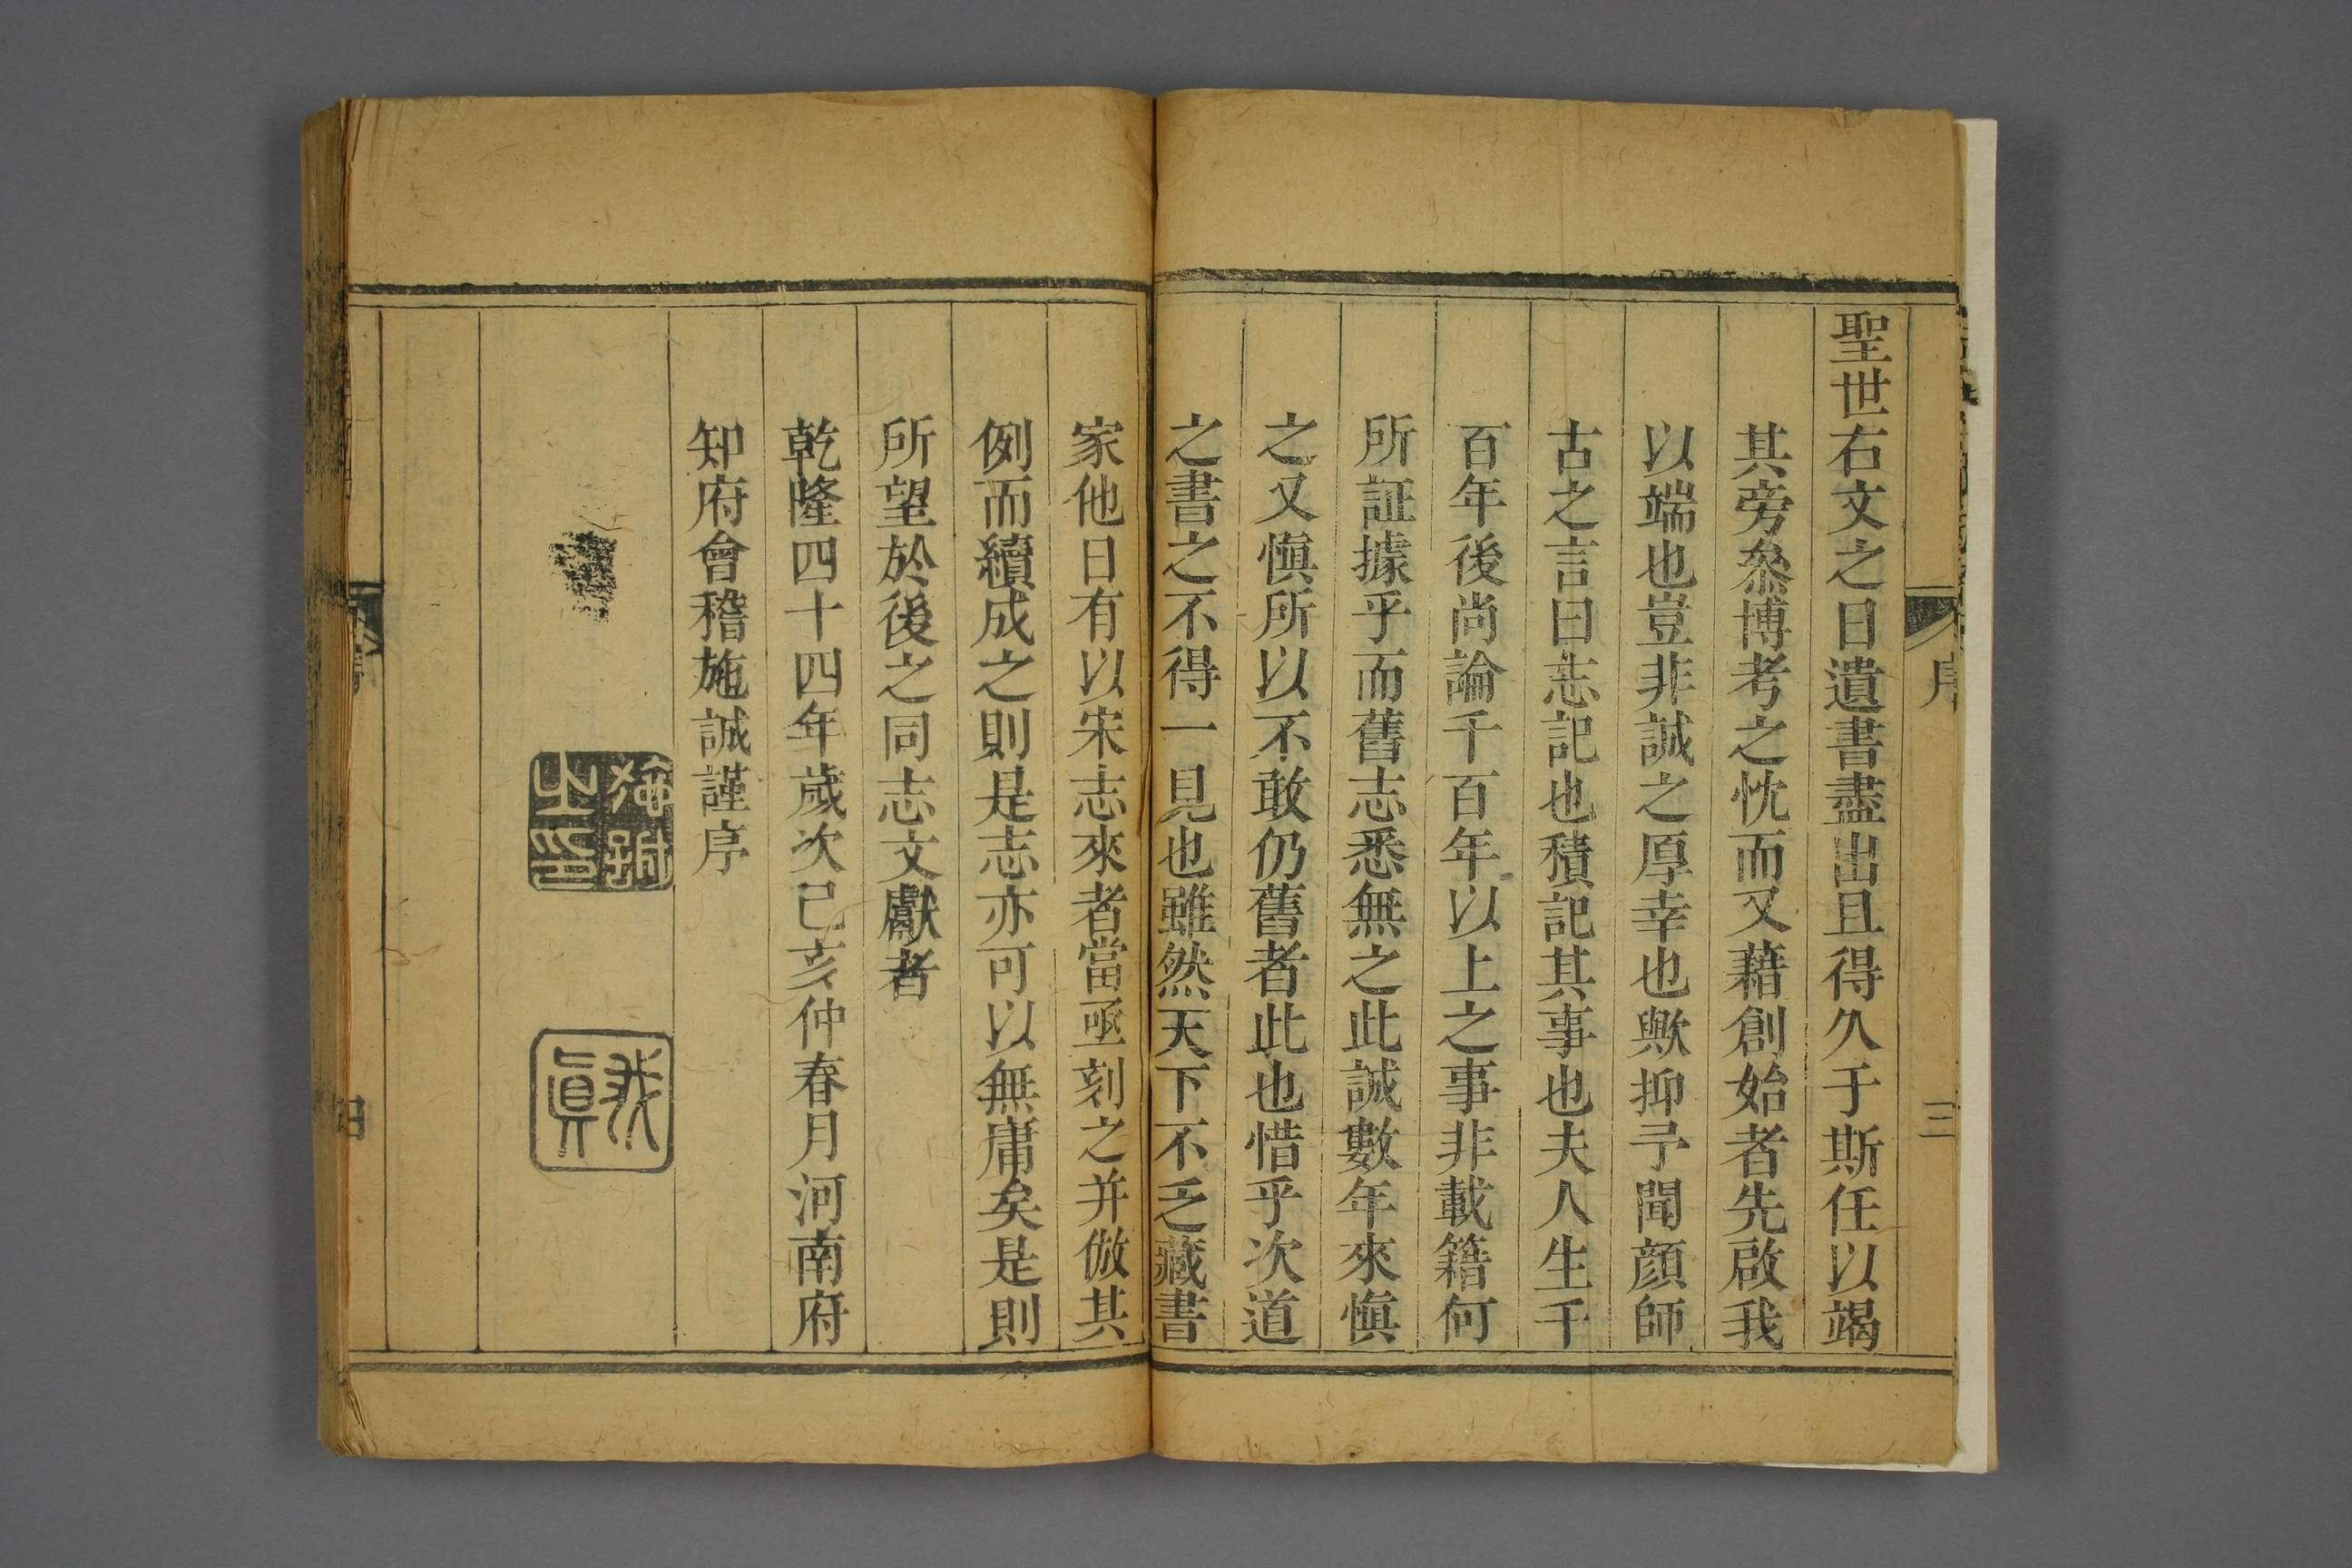 序
三
聖世右文之日遺書盡出且得久于斯任以竭
其旁叅博考之忱而又藉創始者先啟我
以端也豈非誠之厚幸也歟抑予聞顏師
古之言曰志記也積記其事也夫人生千
百年後尚論千百年以上之事非載籍何
所証據乎而舊志悉無之此誠數年來慎
之又慎所以不敢仍舊者此也惜乎次道
之書之不得一見也雖然天下不乏藏書
家他日有以宋志來者當亟刻之并倣其
例而續成之則是志亦可以無庸矣是則
所望於後之同志文獻者
乾隆四十四年歲次己亥仲春月河南府
知府會稽施誠謹序
施誠之印
我真